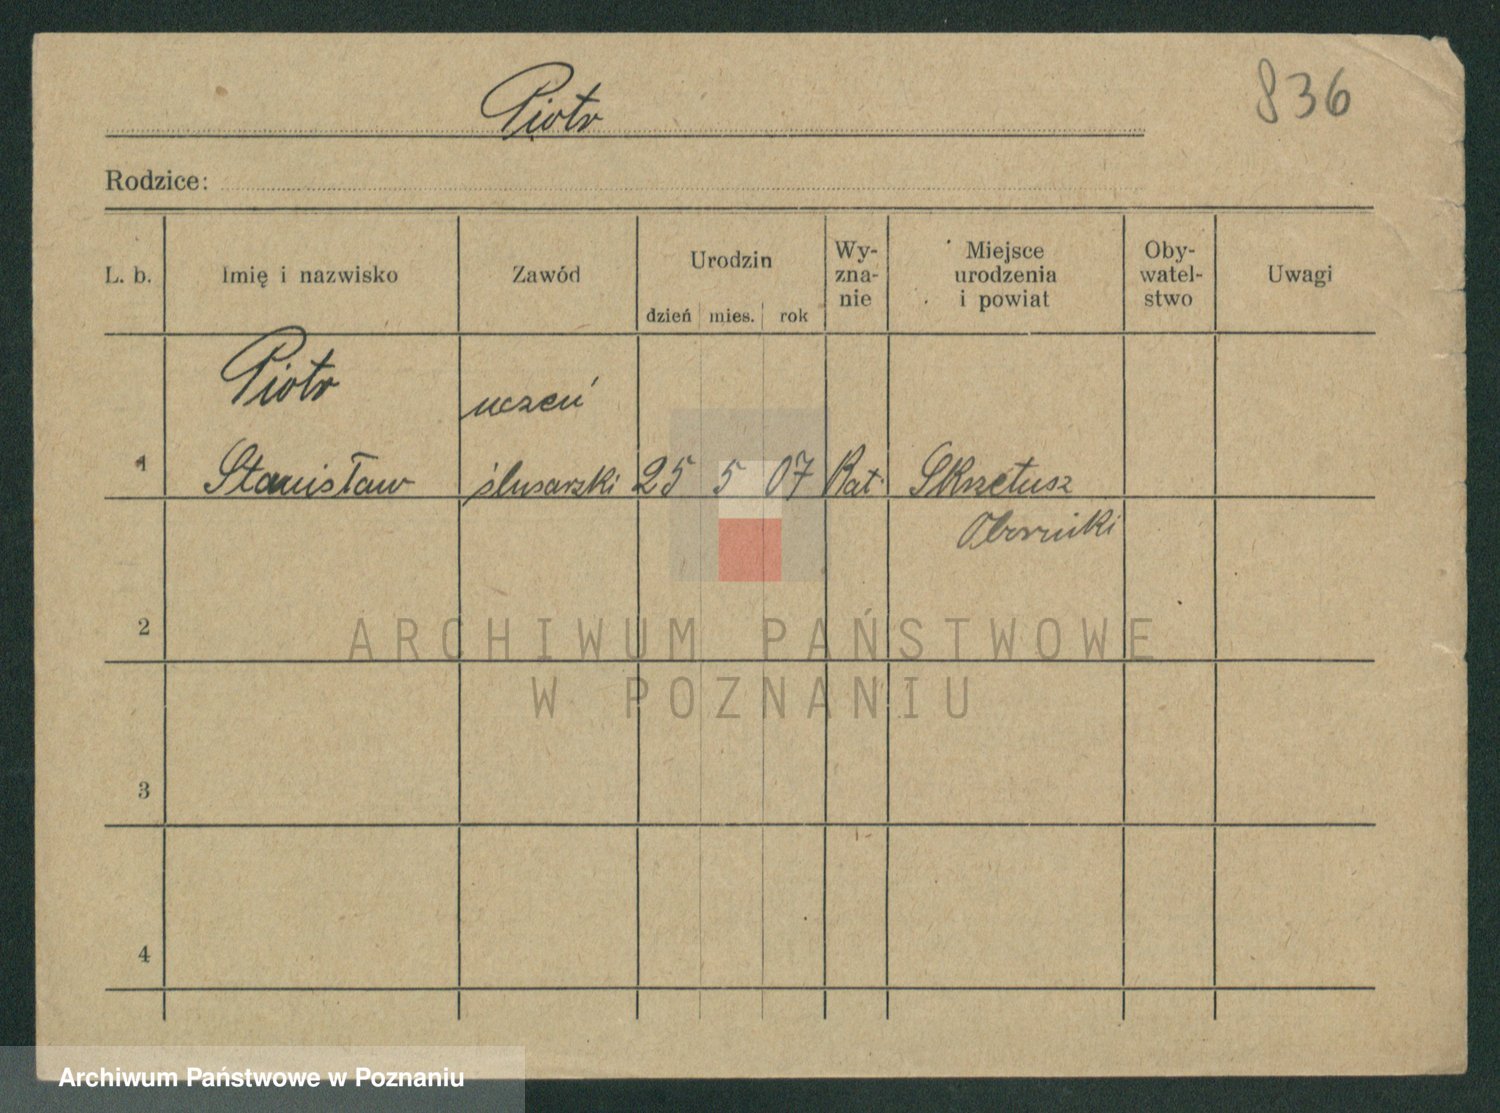 Piotr
836
Rodzice:
L. b.
Imię i nazwisko
Zawód
Urodzin
dzień mies. rok
Wy-
zna-
nie
Miejsce
urodzenia
i powiat
Oby-
watel-
stwo
Uwagi
Piotr uczeń
1 Stanisław ślusarski 25 5 07 Kat Skrzetusz
Oborniki
2
ARCHIWUM PAŃSTWOWE
W POZNANIU
3
4
Archiwum Państwowe w Poznaniu